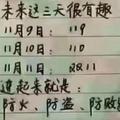 未来这三天很有趣
11月9日： 119
11月10日： 110
11月11日： 双11
连起来就是：
防火、防盗、防败